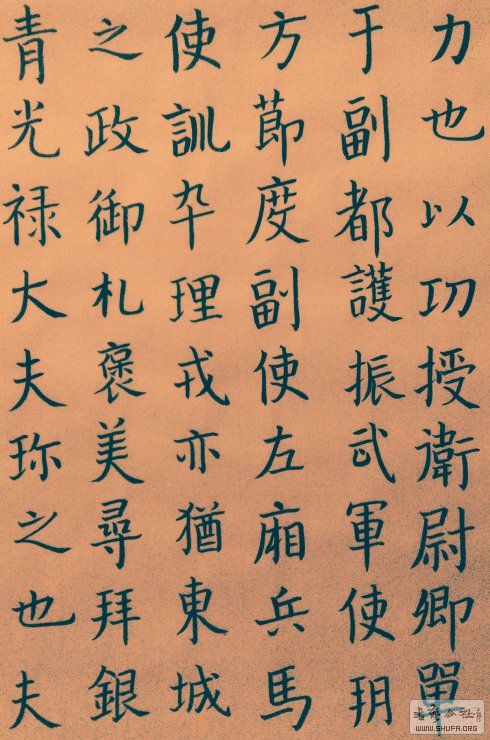 力也以功授衛尉卿單
于副都護振武軍使朔
方節度副使左廂兵馬
使訓卒理戎亦猶東城
之政御札褒美尋拜銀
青光禄大夫珎之也夫
WWW.SHUFA.ORG